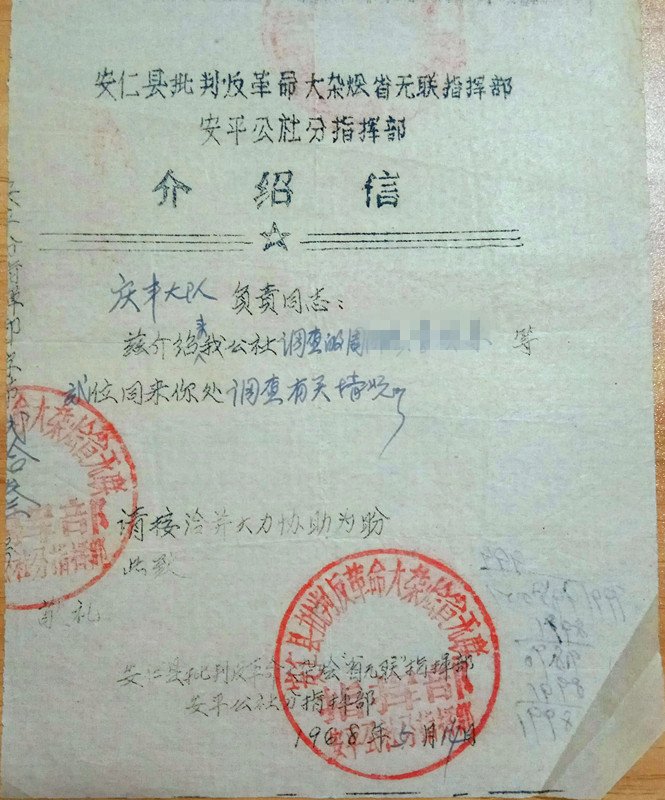 安仁县批判反革命大杂烩省无联指挥部
安平公社分指挥部
介绍信
庆丰大队负责同志：
兹介绍我公社来人调查的周 等
贰位同来你处调查有关情况
请接洽并大力协助为盼
此致
敬礼
安仁县批判反革命大杂烩省无联指挥部
安平公社分指挥部
1968年5月14日
安仁县批判反革命大杂烩省无联
指挥部
安平公社分指挥部
命大杂烩省无联
指挥部
社分指挥部